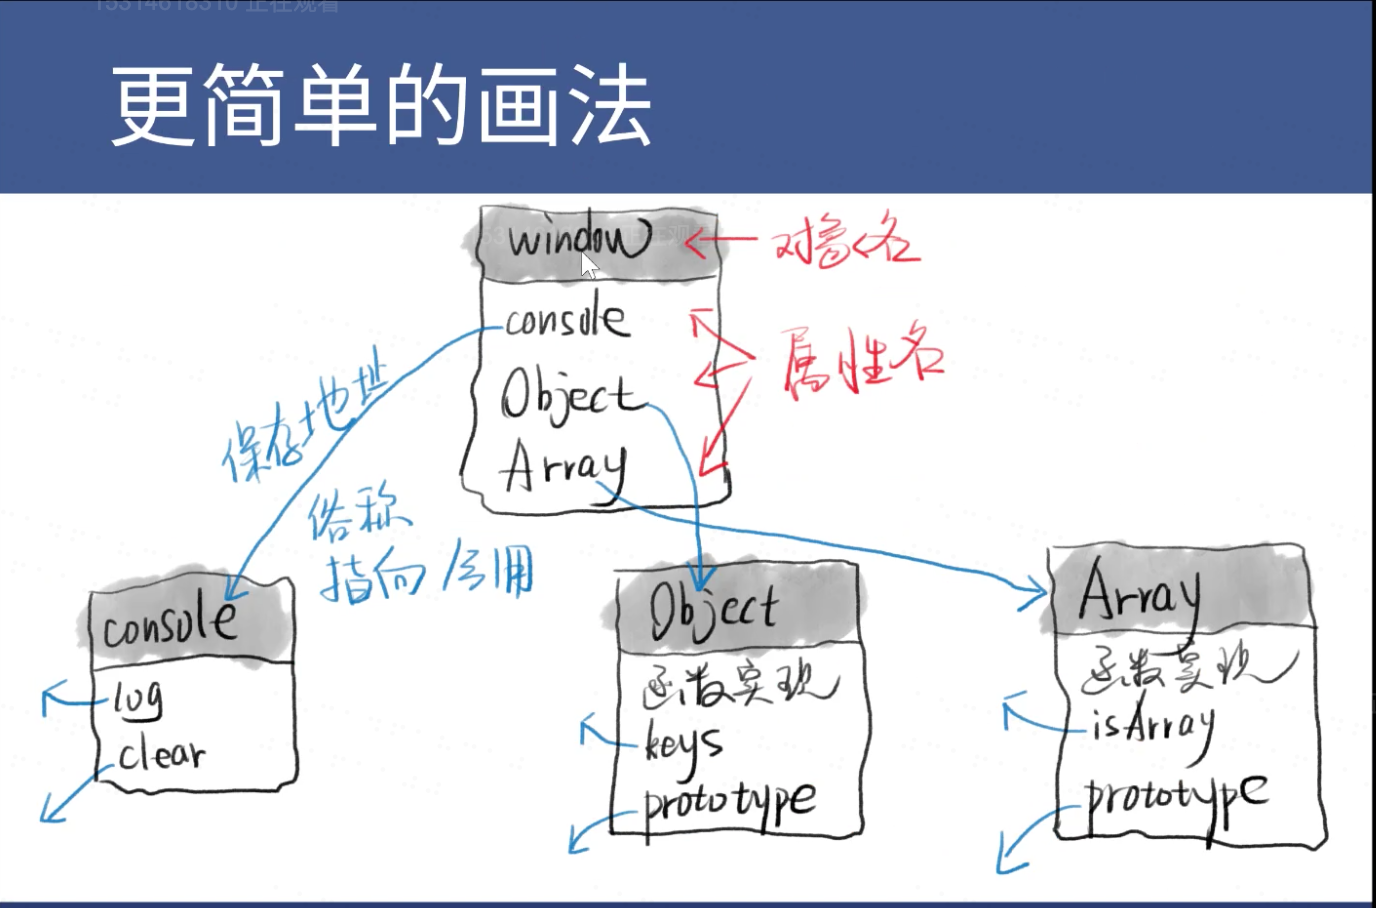 15314618310 正在观看
更简单的画法
window
对象名
console
Object
Array
属性名
保存地址
俗称
指向/引用
console
log
clear
Object
函数实现
keys
prototype
Array
函数实现
isArray
prototype